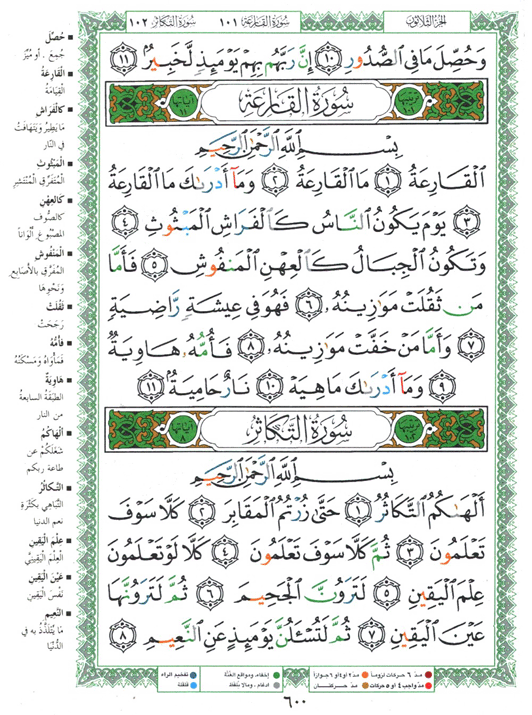 الجزء الثلاثون
سورة القارعة ١٠١
سورة التكاثر ١٠٢
وَحُصِّلَ مَا فِى ٱلصُّدُورِ ١٠ إِنَّ رَبَّهُم بِهِمْ يَوْمَئِذٍ لَّخَبِيرٌ ١١
سُورَةُ القَارِعَةِ
بِسْمِ ٱللَّهِ ٱلرَّحْمَٰنِ ٱلرَّحِيمِ
ٱلْقَارِعَةُ ١ مَا ٱلْقَارِعَةُ ٢ وَمَآ أَدْرَىٰكَ مَا ٱلْقَارِعَةُ
٣ يَوْمَ يَكُونُ ٱلنَّاسُ كَٱلْفَرَاشِ ٱلْمَبْثُوثِ ٤
وَتَكُونُ ٱلْجِبَالُ كَٱلْعِهْنِ ٱلْمَنفُوشِ ٥ فَأَمَّا
مَن ثَقُلَتْ مَوَٰزِينُهُۥ ٦ فَهُوَ فِى عِيشَةٍ رَّاضِيَةٍ
٧ وَأَمَّا مَنْ خَفَّتْ مَوَٰزِينُهُۥ ٨ فَأُمُّهُۥ هَاوِيَةٌ
٩ وَمَآ أَدْرَىٰكَ مَا هِيَهْ ١٠ نَارٌ حَامِيَةٌۢ ١١
سُورَةُ التَّكَاثُرِ
بِسْمِ ٱللَّهِ ٱلرَّحْمَٰنِ ٱلرَّحِيمِ
أَلْهَىٰكُمُ ٱلتَّكَاثُرُ ١ حَتَّىٰ زُرْتُمُ ٱلْمَقَابِرَ ٢ كَلَّا سَوْفَ
تَعْلَمُونَ ٣ ثُمَّ كَلَّا سَوْفَ تَعْلَمُونَ ٤ كَلَّا لَوْ تَعْلَمُونَ
عِلْمَ ٱلْيَقِينِ ٥ لَتَرَوُنَّ ٱلْجَحِيمَ ٦ ثُمَّ لَتَرَوُنَّهَا
عَيْنَ ٱلْيَقِينِ ٧ ثُمَّ لَتُسْـَٔلُنَّ يَوْمَئِذٍ عَنِ ٱلنَّعِيمِ ٨
■ حُصِّلَ
جُمِعَ . أو مُيِّزَ
■ القَارِعَةُ
القِيَامَةُ
■ كَالفَرَاشِ
مَا يَطِيرُ وَيَتَهَافَتُ
في النار
■ المَبْثُوثِ
المُتَفَرِّقِ المُنْتَشِرِ
■ كَالعِهْنِ
كالصُّوفِ
المَصْبُوغِ ألْوَاناً
■ المَنْفُوشِ
المُفَرَّقِ بِالأصَابِعِ
وَنَحْوِهَا
■ ثَقُلَتْ
رَجَحَتْ
■ فَأُمُّهُ
فَمَأْوَاهُ وَمَسْكَنُهُ
■ هَاوِيَةٌ
الطبَقَةُ السابعةُ
من النار
■ أَلْهَاكُمُ
شَغَلَكُمْ عن
طاعة ربكم
■ التَّكَاثُرُ
التَّبَاهِي بِكَثْرَةِ
نعم الدنيا
■ عِلْمَ اليَقِينِ
العِلْمَ اليَقِينِيَّ
■ عَيْنَ اليَقِينِ
نَفْسَ اليَقِينِ
■ النَّعِيمِ
مَا يُتَلَذَّذُ به في
الدُّنْيَا
مدّ ٦ حركات لزوماً
مدّ ٢ أو ٤ أو ٦ جوازاً
إخفاء، ومواقع الغُنَّة
تفخيم الراء
مدّ واجب ٤ أو ٥ حركات
مدّ حركتان
إدغام ، وما لا يُلفظ
قلقلة
٦٠٠